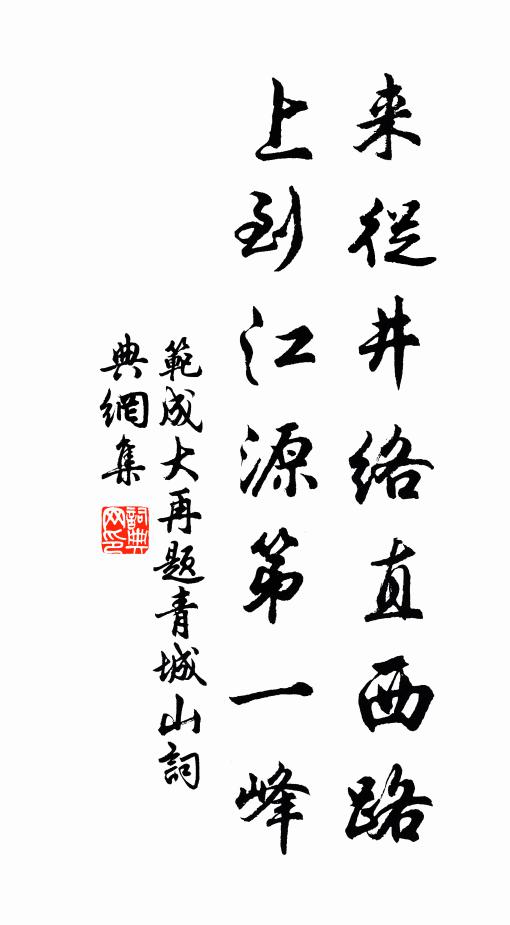 来從井絡直西路
上到江源第一峰
範成大再题青城山詞
典網集
詞典
网印